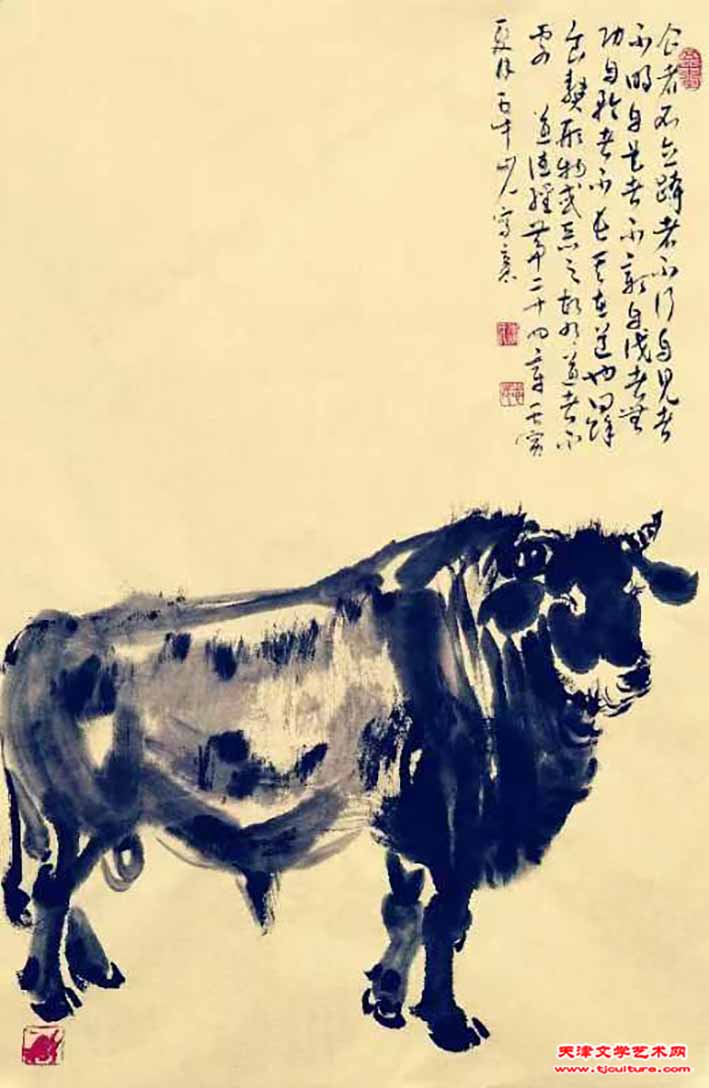 企者不立跨者不行自見者
不明自是者不彰自伐者無
功自矜者不長其在道也曰餘
食贅形物或惡之故有道者不
處 道德經第二十四章 壬寅
夏 寫意
天津文学艺术网
www.tjculture.com